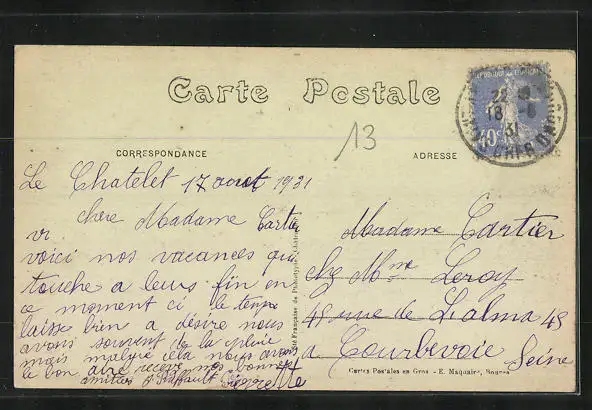 Carte Postale
13
CORRESPONDANCE
ADRESSE
40c
18 -8
31
CHER
Le Chatelet 17 aout 1931
chere Madame Cartier
voici nos vacances qui
touche a leurs fin en
ce moment ci le temps
laisse bien a désire nous
avons souvent de la pluie
mais malgre cela nous avons
le bon aire recevé nos bonnes
amities Pierrette
Madame Cartier
chz Mme Leroy
45 rue de Lalma 45
a Courbevoie Seine
Cartes Postales en Gros - E. Maquaire, Bourges